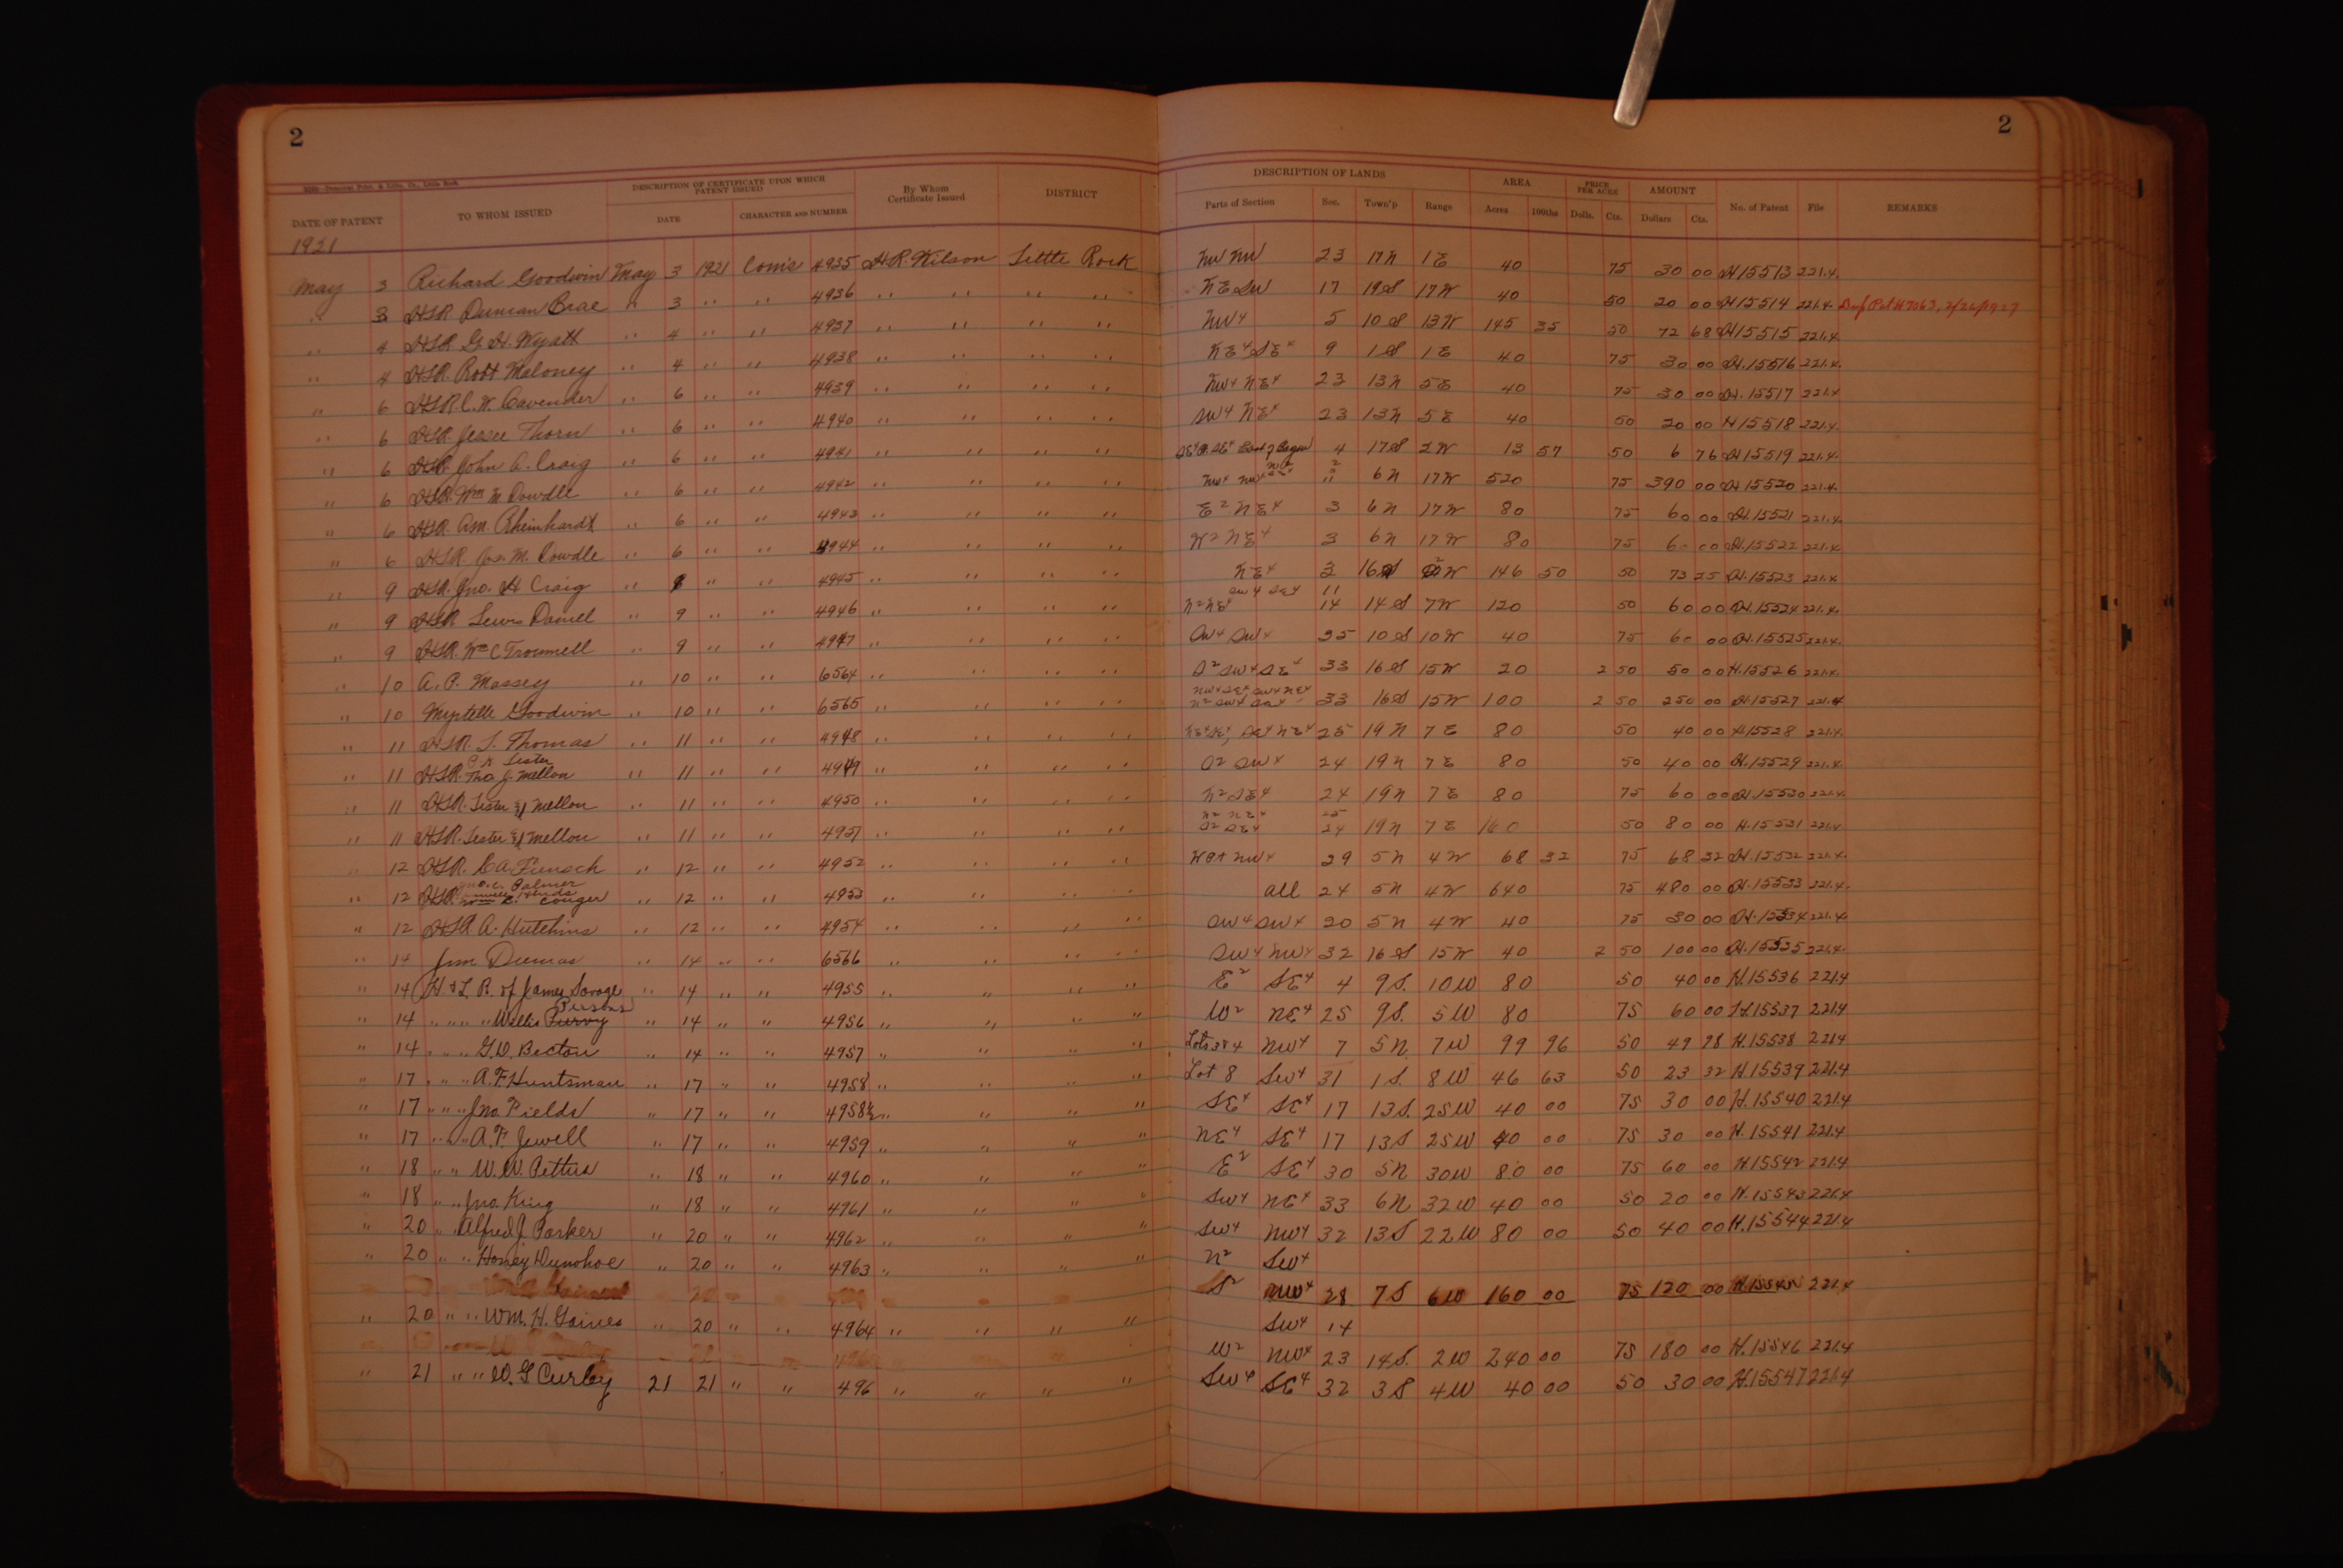 2 2
3202—Democrat Print. & Litho. Co., Little Rock
DESCRIPTION OF CERTIFICATE UPON WHICH PATENT ISSUED By Whom Certificate Issued DISTRICT DESCRIPTION OF LANDS AREA PRICE PER ACRE AMOUNT
DATE OF PATENT TO WHOM ISSUED DATE CHARACTER AND NUMBER Parts of Section Sec. Town'p Range Acres 100ths Dolls. Cts. Dollars Cts. No. of Patent File REMARKS
1921
May 3 Richard Goodwin May 3 1921 Com's 4935 H.R. Wilson Little Rock NW NW 23 17N 1E 40 75 30 00 H15513 221.4.
" 3 H&LR. Duncan Brae " 3 " " 4936 " " " " NE SW 17 19S 17W 40 50 20 00 H15514 221.4.
" 4 H&LR. G.H. Wyatt " 4 " " 4937 " " " " NW4 5 10S 13W 145 35 50 72 68 H15515 221.4.
" 4 H&LR. Robt Maloney " 4 " " 4938 " " " " NE4 SE4 9 1S 1E 40 75 30 00 H.15516 221.4.
" 6 H&LR. C.W. Cavender " 6 " " 4939 " " " " NW4 NE4 23 13N 5E 40 75 30 00 H.15517 221.4
" 6 H&LR. Jessee Thorn " 6 " " 4940 " " " " SW4 NE4 23 13N 5E 40 50 20 00 H15518 221.4.
" 6 H&LR. John A. Craig " 6 " " 4941 " " " " 4 17S 2W 13 57 50 6 76 H15519 221.4.
" 6 H&LR. Wm M. Dowdle " 6 " " 4942 " " " " NW4 NW4 2 " 6N 17W 520 75 390 00 H15520 221.4.
" 6 H&LR. Am. Rheinhardt " 6 " " 4943 " " " " E2 NE4 3 6N 17W 80 75 60 00 H.15521 221.4.
" 6 H&LR. Jos. M. Dowdle " 6 " " 4944 " " " " W2 NE4 3 6N 17W 80 75 60 00 H.15522 221.4
" 9 H&LR. Jno. H Craig " " " 4945 " " " " NE4 3 16S 2W 146 50 50 73 25 H.15523 221.4
SW4 SE4 11
" 9 H&LR Lewis Daniel " 9 " " 4946 " " " " N2 NE4 14 14S 7W 120 50 60 00 H.15524 221.4.
" 9 H&LR. Wm C Trommell " 9 " " 4947 " " " " SW4 SW4 25 10S 10W 40 75 60 00 H.15525 221.4.
" 10 A.P. Massey " 10 " " 6564 " " " " S2 SW4 SE4 33 16S 15W 20 2 50 50 00 H.15526 221.4.
NW4 SE4, SW4 NE4
" 10 Myrtelle Goodwin " 10 " " 6565 " " " " N2 SW4 SE4 33 16S 15W 100 2 50 250 00 H.15527 221.4
" 11 H&LR. L. Thomas " 11 " " 4948 " " " " NE4 SE4, SE4 NE4 25 19N 7E 80 50 40 00 H15528 221.4.
Lester
" 11 H&LR. Tho J. Mellon " 11 " " 4949 " " " " S2 SW4 24 19N 7E 80 50 40 00 H.15529 221.4.
" 11 H&LR. Lester & Mellon " 11 " " 4950 " " " " N2 SE4 24 19N 7E 80 75 60 00 H.15530 221.4.
N2 NE4 25
" 11 H&LR. Lester & Mellon " 11 " " 4951 " " " " S2 SE4 24 19N 7E 160 50 80 00 H.15531 221.4
" 12 H&LR. C.A. Funsch " 12 " " 4952 " " " " NW4 29 5N 4W 68 32 75 68 32 H.15532 221.4.
Palmer
" 12 H&LR. Conger " 12 " " 4953 " " " " all 24 5N 4W 640 75 480 00 H.15533 221.4.
" 12 H&LR A. Hutchins " 12 " " 4954 " " " " SW4 SW4 20 5N 4W 40 75 30 00 H.15534 221.4.
" 14 Jim Dumas " 14 " " 6566 " " " " SW4 NW4 32 16S 15W 40 2 50 100 00 H.15535 221.4.
" 14 H & L.R. of James Savage " 14 " " 4955 " " " " E2 SE4 4 9S. 10W 80 50 40 00 H.15536 221.4
Persons
" 14 " " " Willis Purvy " 14 " " 4956 " " " " W2 NE4 25 9S. 5W 80 75 60 00 H.15537 221.4
" 14 " " " G.W. Becton " 14 " " 4957 " " " " Lots 3&4 NW4 7 5N. 7W 99 96 50 49 98 H.15538 221.4
" 17 " " " A.F. Huntsman " 17 " " 4958 " " " " Lot 8 SW4 31 1S. 8W 46 63 50 23 32 H.15539 221.4
" 17 " " " Jno. Fields " 17 " " 4958½ " " " " SE4 SE4 17 13S. 25W 40 00 75 30 00 H.15540 221.4
" 17 " " " A.F. Jewell " 17 " " 4959 " " " " NE4 SE4 17 13S 25W 40 00 75 30 00 H.15541 221.4
" 18 " " W.W. Pettus " 18 " " 4960 " " " " E2 SE4 30 5N 30W 80 00 75 60 00 H.15542 221.4
" 18 " " Jno. King " 18 " " 4961 " " " " SW4 NE4 33 6N 32W 40 00 50 20 00 H.15543 221.4
" 20 " " Alfred J. Parker " 20 " " 4962 " " " " SW4 NW4 32 13S 22W 80 00 50 40 00 H.15544 221.4
" 20 " " Harvey Dunohoe " 20 " " 4963 " " " " N2 SW4
S2 NW4 28 7S 6W 160 00 75 120 00 H.15545 221.4
" 20 " " Wm. H. Gaines " 20 " " 4964 " " " " SW4 14
W2 NW4 23 14S. 2W 240 00 75 180 00 H.15546 221.4
" 21 " " W.G Curley 21 21 " " 496 " " " " SW4 SE4 32 3S 4W 40 00 50 30 00 H.15547 221.4